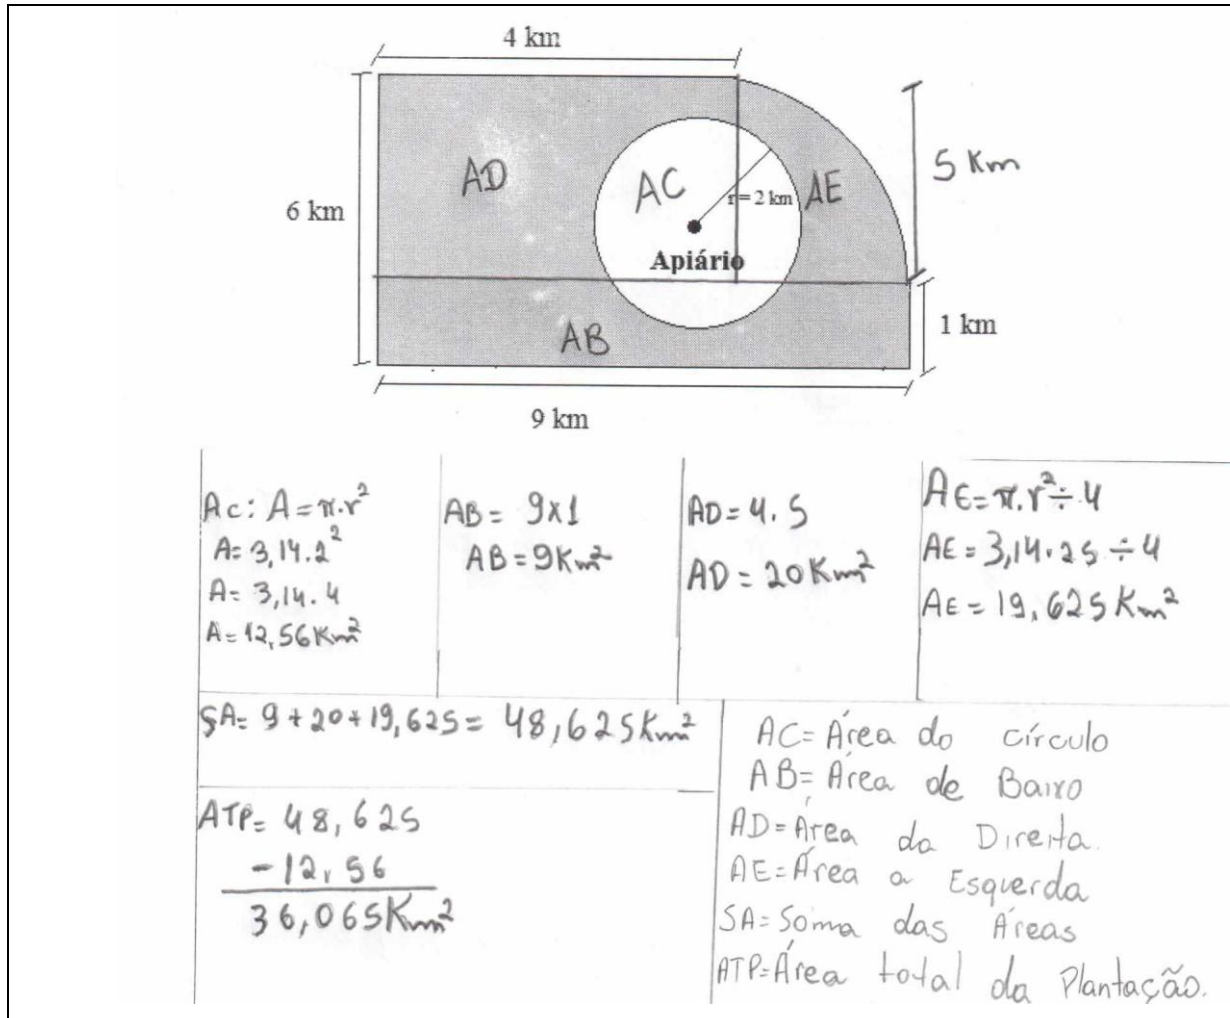 4 km
AD
AC
r = 2 km
AE
5 Km
6 km
Apiário
1 km
AB
9 km
Ac: A = π.r²
A= 3,14.2²
A= 3,14.4
A= 12,56Km²
AB= 9x1
AB= 9Km²
AD= 4.5
AD= 20Km²
AE= π.r²÷4
AE= 3,14.25÷4
AE= 19,625Km²
SA= 9+20+19,625= 48,625Km²
ATP= 48,625
-12,56
36,065Km²
AC= Área do círculo
AB= Área de Baixo
AD= Área da Direita.
AE= Área a Esquerda
SA= Soma das Áreas
ATP= Área total da Plantação.